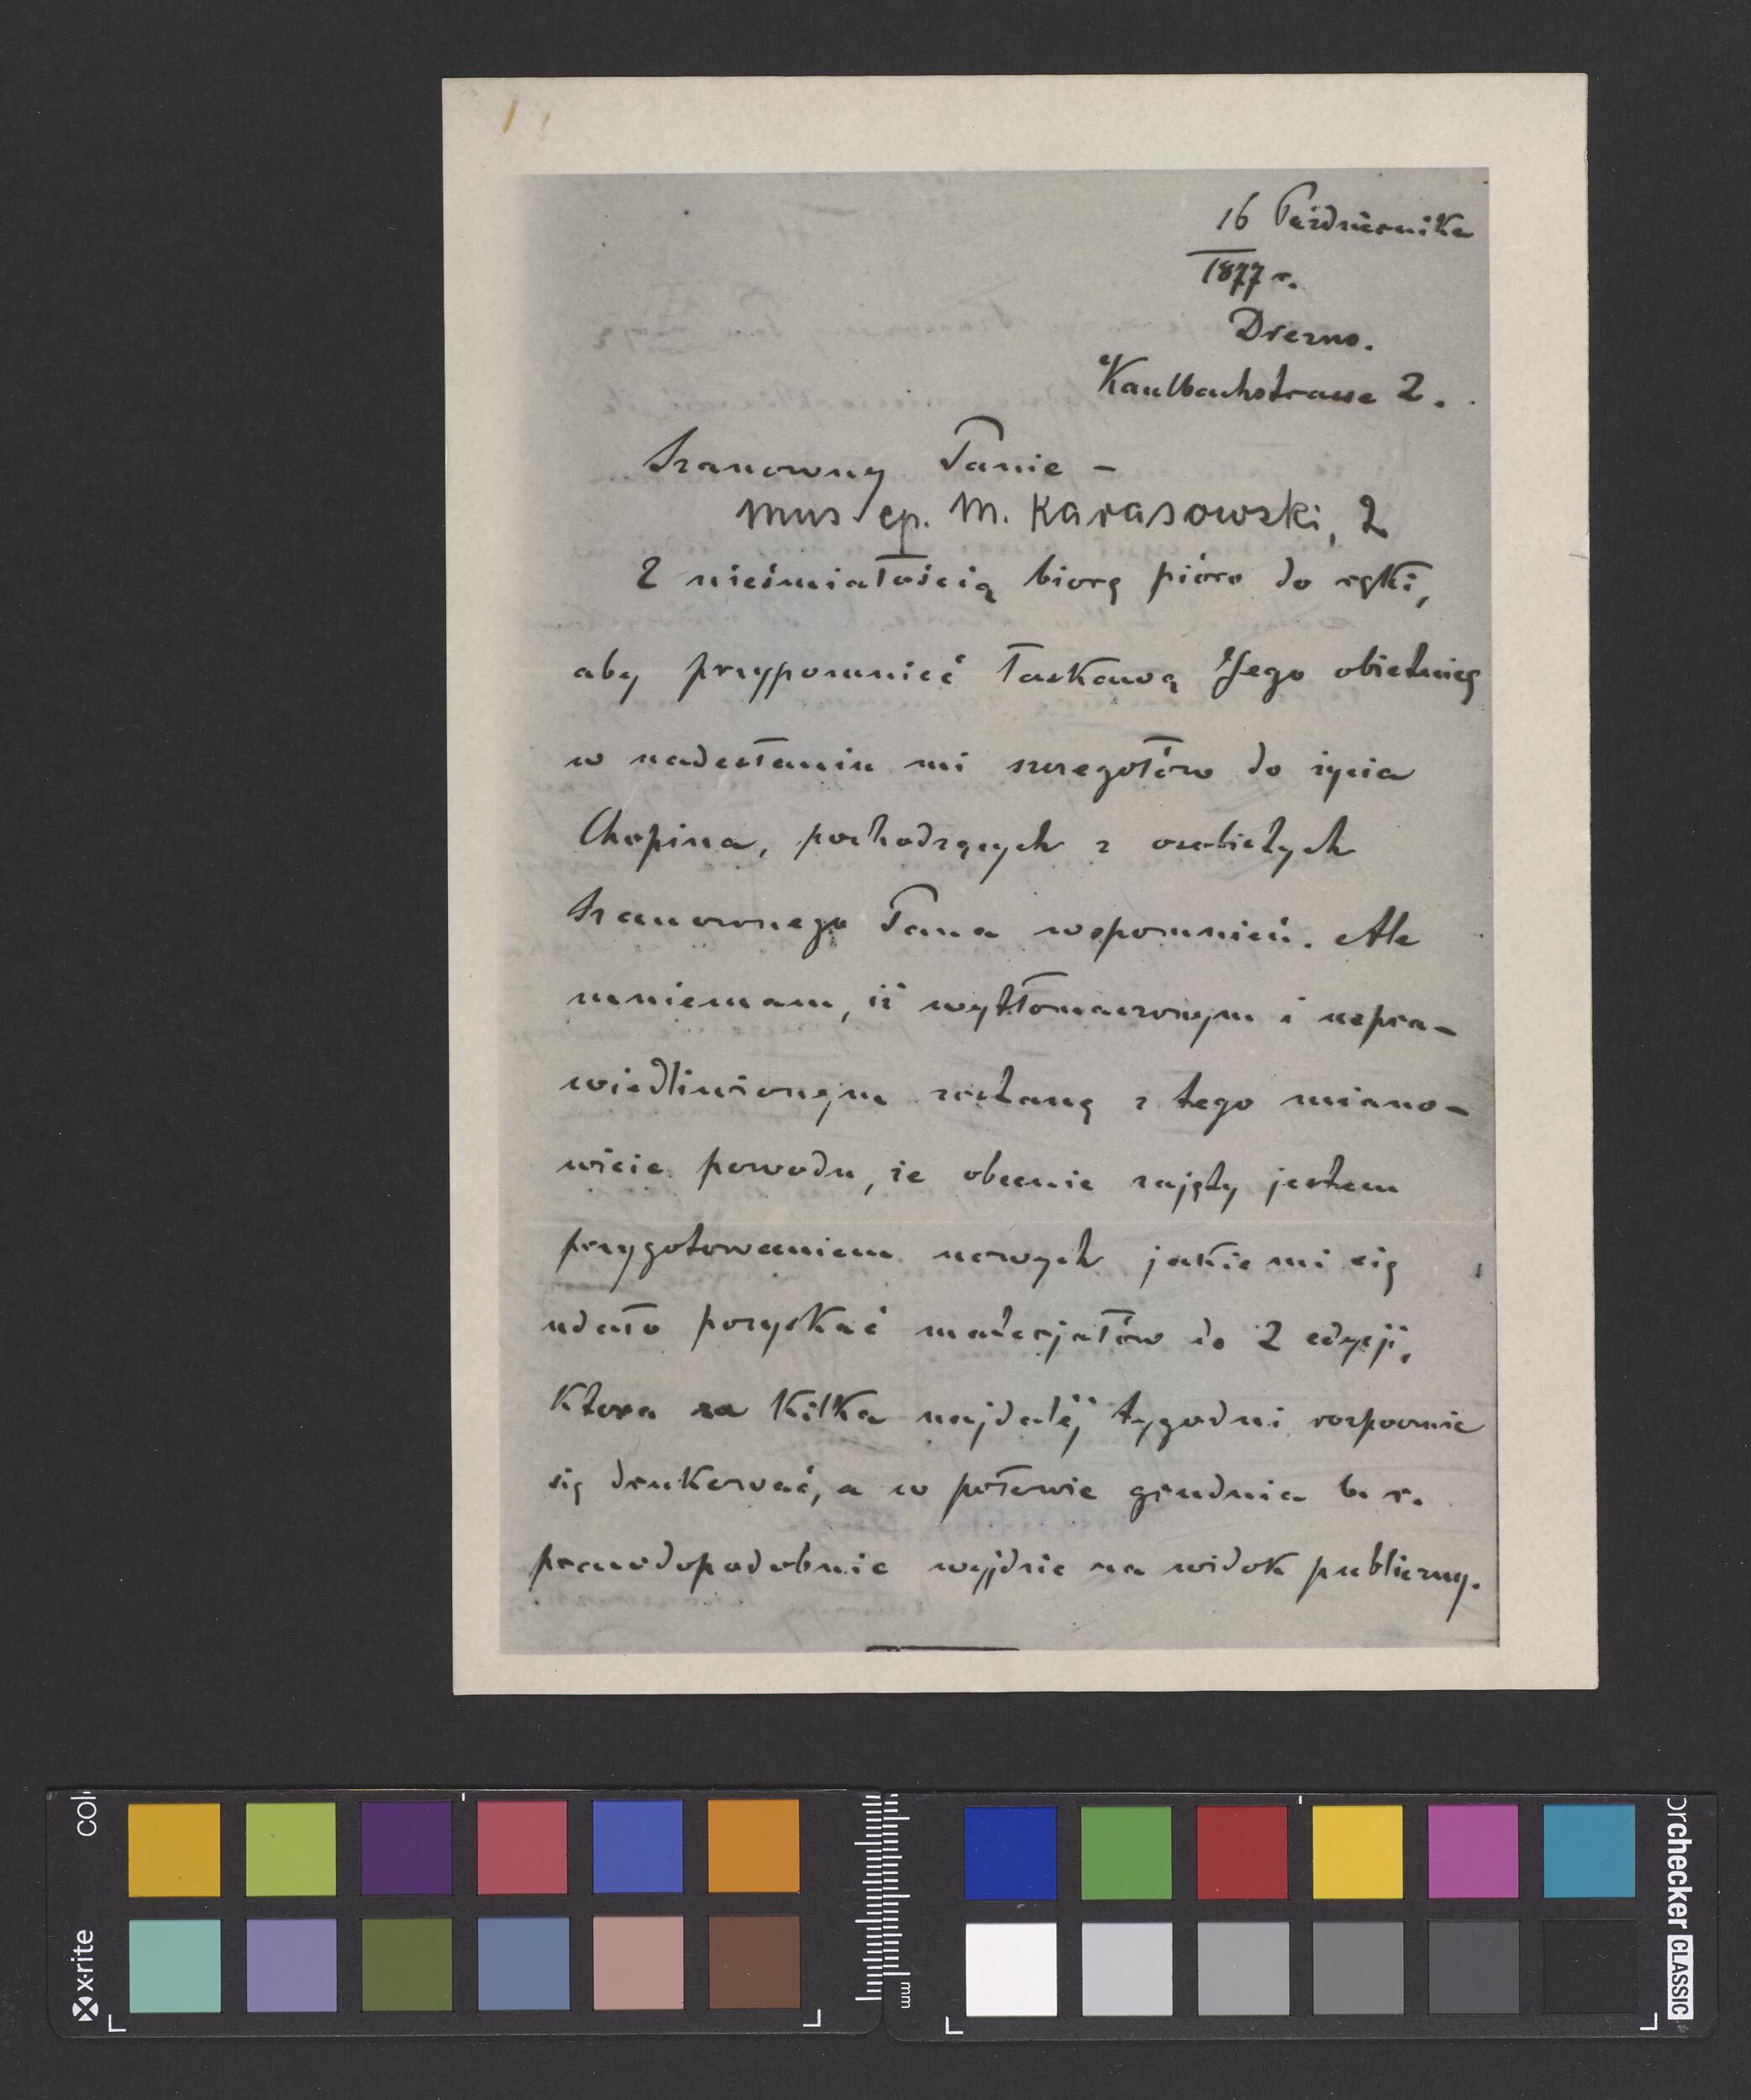 16 Października
1877 r.
Drezno.
Kaulbachstrasse 2.
Szanowny Panie –
Mus. ep. M. Karasowski, 2
Z nieśmiałością biorę pióro do ręki,
aby przypomnieć łaskawą Jego obietnicę
w nadesłaniu mi szczegołów do życia
Chopina, pochodzących z osobistych
Szanownego Pana wspomnień. Ale
mniemam, iż wytłomaczonym i uspra-
wiedliwionym zostanę z tego miano-
wicie powodu, że obecnie zajęty jestem
przygotowaniem nowych jakie mi się
udało pozyskać materjałów do 2 edycji,
ktora za kilka najdaléj tygodni rozpocznie
się drukować, a w połowie grudnia b. r.
prawdopodobnie wyjdzie na widok publiczny.
x·rite
col
mm
orchecker CLASSIC